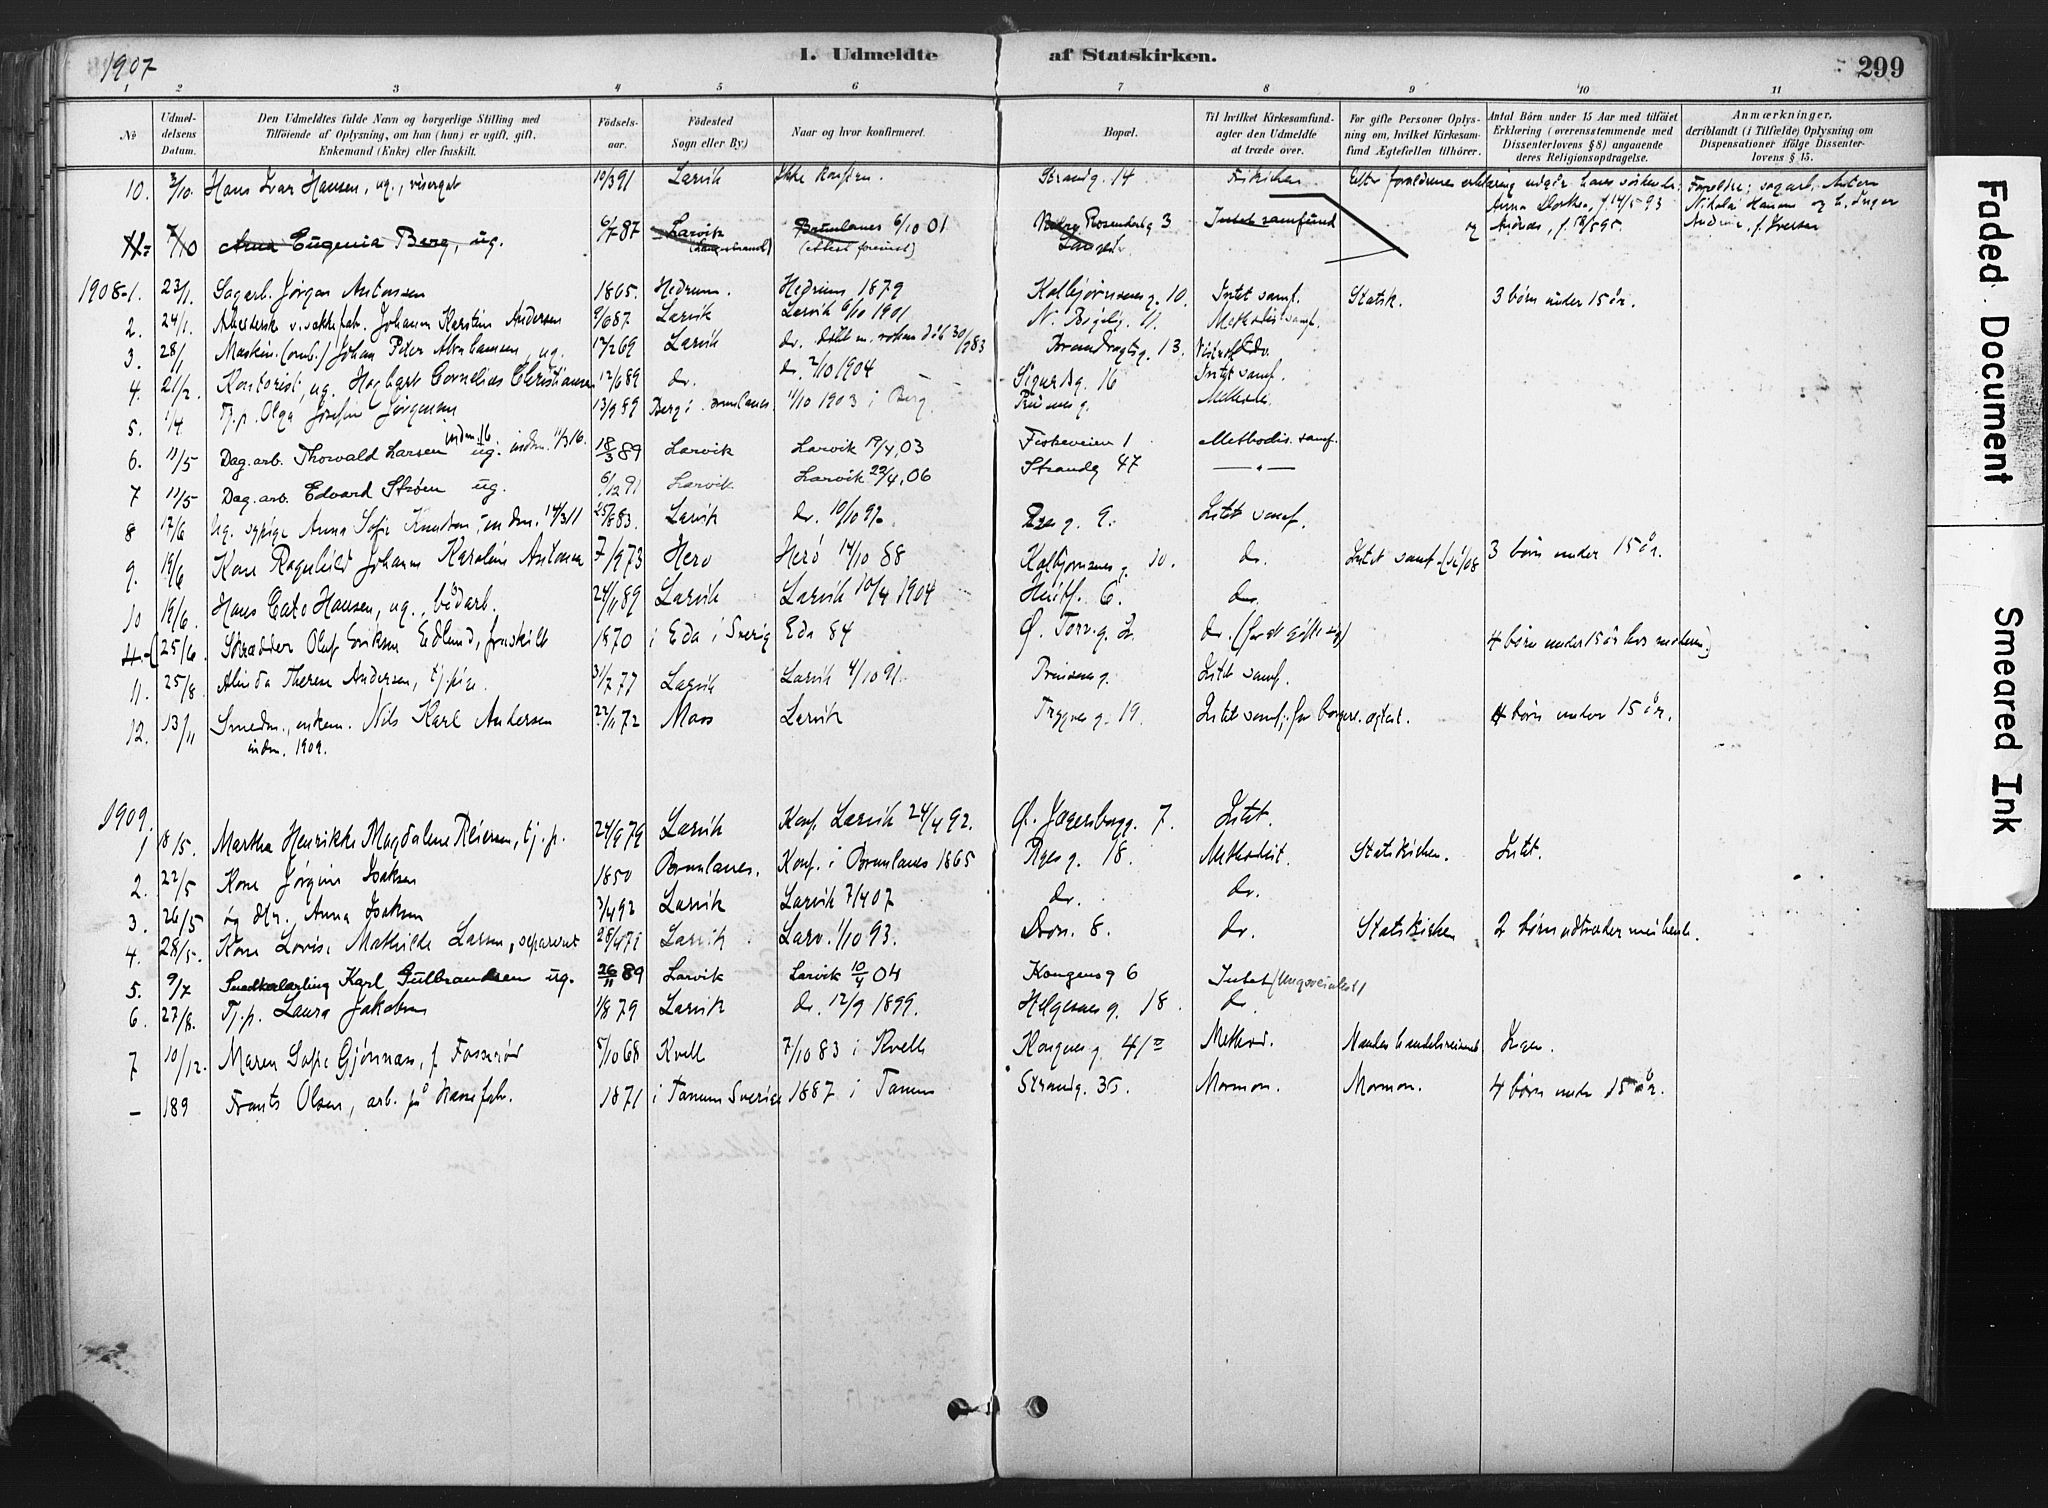 1907
I. Udmeldte af Statskirken.
299
1 2 3 4 5 6 7 8 9 10 11
No
Udmeldelsens Datum.
Den Udmeldtes fulde Navn og borgerlige Stilling med Tilföiende af Oplysning, om han (hun) er ugift, gift, Enkemand (Enke) eller fraskilt.
Födselsaar.
Födested Sogn eller By.)
Naar og hvor konfirmeret.
Bopæl.
Til hvilket Kirkesamfund agter den Udmeldte at træde over.
For gifte Personer Oplysning om, hvilket Kirkesamfund Ægtefællen tilhörer.
Antal Börn under 15 Aar med tilföiet Erklæring (overensstemmende med Dissenterlovens § 8) angaaende deres Religionsopdragelse.
Anmærkninger, deriblandt (i Tilfælde) Oplysning om Dispensationer ifölge Dissenterlovens § 15.
10. 3/10 Hans Ivar Hansen, ug., visergut 10/3 91 Larvik Ikke konfirm. Strandg. 14 Frikirken Efter forældrenes erklæring
Anna Dorthea, f. 14/5 93
og Andreas, f. 18/5 95.
11. 7/10 Anna Eugenia Berg, ug. 6/7 87 Larvik (Langestrand) Brunlanes 6/10 01 Rosendalsg 3 Intet samfund
1908-1. 23/1. Sagarb. Jørgen Antonsen 1865. Hedrum. Hedrum 1879 Kolbjørnsensg. 10. Intet samf. Statsk. 3 børn under 15 år.
2. 24/1. Johann Karstein Andersen 9/6 87 Larvik Larvik 6/10 1901 N. Bøjelig. 11. Methodistsamf.
3. 28/1 Johan Peter Abrahamsen, ug. 17/2 69 Larvik do. 13. do.
4. 21/2. Kontorist, ug. Hagbart Cornelius Christiansen 12/6 89 do. do. 2/10 1904 Sigurdsg. 16 Intet samf.
5. 1/4 Tj.p. Olga Josefine Jørgensen 13/9 89 Berg i Brunlanes. 11/10 1903 i Berg Methodi.
6. 11/5 Dag.arb. Thorvald Larsen ug. indm. 11/3 16. 18/3 89 Larvik Larvik 19/4, 03 Festeveien 1 Methodis. samf.
7 11/5 Dag.arb. Edvard Strøm ug. 6/12 91 Larvik Larvik 22/4, 06 Strandg 47 — „ —
8 17/6 Ug. sypige Anna Sofie Knudsen, indm. 14/3 11 25/8 83. Larvik do. 10/10 97. 9. Intet samf.
9. 19/6 Kone Ragnhild Johanne Karoline Antonsen 7/9 73 Herø Herø 14/10 88 Kolbjørnsensg. 10. do. Intet samf. 3 børn under 15 år.
10 19/6. Hans Cato Hansen, ug., bødarb. 24/11 89 Larvik Larvik 10/4 1904 6. do.
25/6. Skrædder Oluf Eriksen Edlund, fraskilt 1870 i Eda i Sverig Eda 84 Ø. Torvg. 2. do. (for at gifte sig) 4 børn under 15 år hos moderen.)
11. 25/8. Alinda Therese Andersen, tj.pige. 31/7 77 Larvik Larvik 4/10 91. Prinsensg. Intet samf.
12. 13/11 Smedm., enkem. Nils Karl Andersen 22/11 72 Moss Larvik Trygvesg. 19. Intet samf., for borgerl. egtesk. 4 børn under 15 år.
indm. 1909.
1909.
1 18/5. Martha Henrikke Magdalene Reiersen, tj.p. 24/9 79 Larvik Konf. Larvik 24/4 92. Ø. Jægersborgg. 7. Intet.
2. 22/5 Kone Jørgine Isaksen 1850 Brunlanes. Konf. i Brunlanes 1865 Ryesg. 18. Methodist. Statskirken. Intet.
3. 26/5 og dtr. Anna Isaksen 3/4 92 Larvik Larvik 7/4 07 do. do.
4. 28/5. Kone Lovise Mathilde Larsen, separeret 28/4 71 Larvik Larv. 1/10 93. Dron. 8. do. Statskirken 2 børn udtræder med hende.
5. 9/7 Snedkerlærling Karl Gulbrandsen ug. 26/11 89 Larvik Larvik 10/4 04 Kongensg 6 Intet
6. 27/8. Tj.p. Laura Jakobsen 1/8 79 Larvik do. 12/9 1899. Helgesensg. 18. do
7 10/12. Maren Sofie Gjønnæs, f. Fosserød 5/10 68 Kvell 7/10 83 i Kvell Kongensg 41 Method. Manden handelsreisende Ingen.
– 189 Frants Olsen, arb. på Hanefab. 1871 i Tanum Sverige 1887 i Tanum Strandg. 35. Mormon. Mormon. 4 børn under 15 år.
Faded Document
Smeared Ink